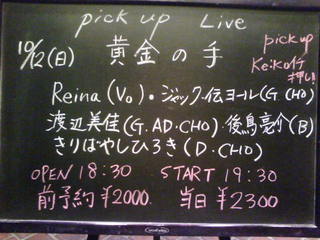 pick up Live
10/12(日) 黄金の手
pick up
Keiko行
押し!
Reina (Vo)・ジャック伝ヨール(G.CHO)
渡辺美佳(G.AD.CHO)・後鳥亮介(B)
きりばやしひろき(D.CHO)
OPEN 18:30 START 19:30
前予約 ¥2000. 当日 ¥2300